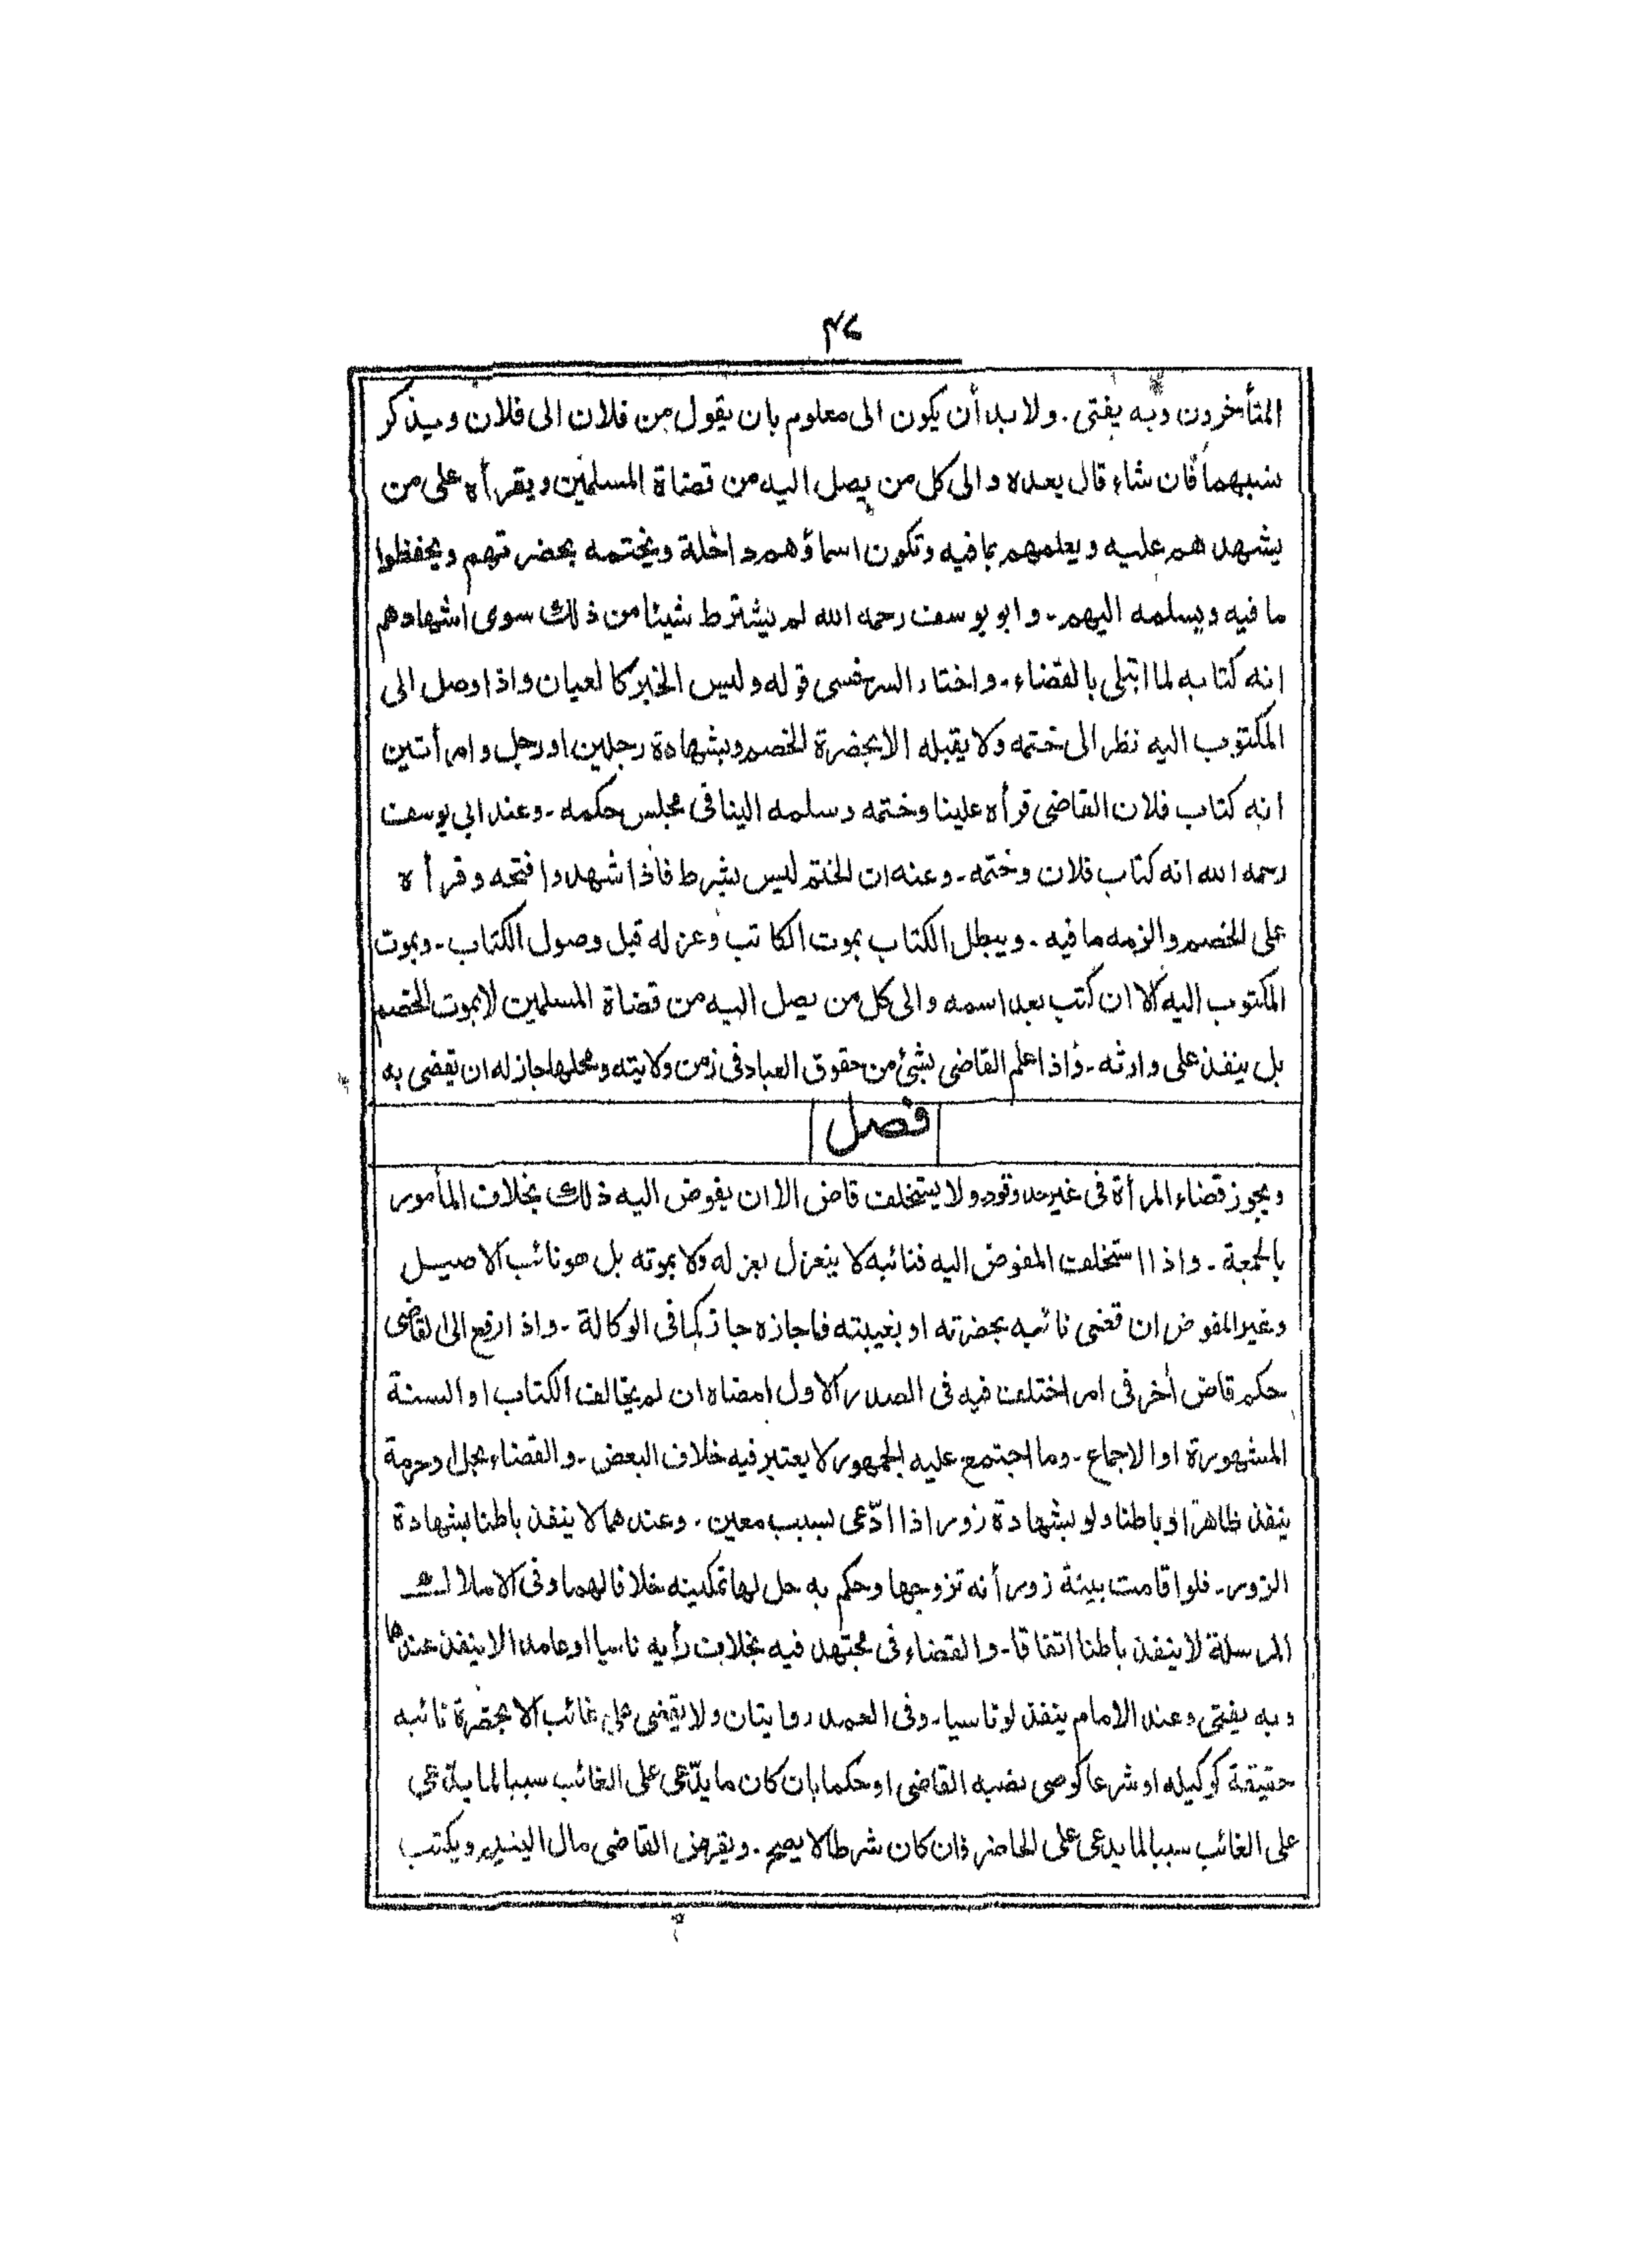 ٣٤
المتأخرون وبه يفتى ـ ولا بد أن يكون الى معلوم بان يقول من فلان الى فلان ويذكر
نسبهما فان شاء قال بعده والى كل من يصل اليه من قضاة المسلمين ويقرأه على من
يشهدهم عليه ويعلمهم بما فيه وتكون اسماؤهم داخلة ويختمه بحضرتهم ويحفظوا
ما فيه ويسلمه اليهم ـ وابو يوسف رحمه الله لم يشترط شيئا من ذلك سوى اشهادهم
انه كتابه لما ابتلى بالقضاء ـ واختار السرخسى قوله وليس الخبر كالعيان واذا وصل الى
المكتوب اليه نظر الى ختمه ولا يقبله الا بحضرة الخصم وبشهادة رجلين او رجل وامرأتين
انه كتاب فلان القاضى قرأه علينا وختمه وسلمه الينا فى مجلس حكمه ـ وعند ابى يوسف
رحمه الله انه كتاب فلان وختمه ـ وعنه ان الختم ليس بشرط فاذا شهدوا فتحه وقرأه
على الخصم والزمه ما فيه ـ ويبطل الكتاب بموت الكاتب وعزله قبل وصول الكتاب ـ وبموت
المكتوب اليه الا ان كتب بعد اسمه والى كل من يصل اليه من قضاة المسلمين لا بموت الخصم
بل ينفذ على وارثه ـ واذا علم القاضى بشئ من حقوق العباد فى زمن ولايته ومحلها جاز له ان يقضى به
فصل
ويجوز قضاء المرأة فى غير حد وقود ولا يستخلف قاض الا ان يفوض اليه ذلك بخلاف المأمور
بالجمعة ـ واذا استخلف المفوض اليه فنائبه لا ينعزل بعزله ولا بموته بل هو نائب الاصيل
وغير المفوض ان قضى نائبه بحضرته او بغيبته فاجازه جاز كما فى الوكالة ـ واذا رفع الى القاضى
حكم قاض أخر فى امر اختلف فيه فى الصدر الاول امضاه ان لم يخالف الكتاب او السنة
المشهورة او الاجماع ـ وما اجتمع عليه الجمهور لا يعتبر فيه خلاف البعض ـ والقضاء بحل او حرمة
ينفذ ظاهرا وباطنا ولو بشهادة زور اذا ادّعى بسبب معين ـ وعندهما لا ينفذ باطنا بشهادة
الزور ـ فلو اقامت بينة زور أنه تزوجها وحكم به حل لها تمكينه خلافا لهما وفى الاملاك
المرسلة لا ينفذ باطنا اتفاقا ـ والقضاء فى مجتهد فيه بخلاف رأيه ناسيا او عامدا لا ينفذ عندهما
وبه يفتى وعند الامام ينفذ لو ناسيا ـ وفى العمد روايتان ولا يقضى على غائب الا بحضرة نائبه
حقيقة كوكيله او شرعا كوصى نصبه القاضى او حكما بان كان ما يدّعى على الغائب سببا لما يدّعى
على الغائب سببا لما يدعى على الحاضر فان كان شرطا لا يصح ـ ويقرض القاضى مال اليتيم ويكتب